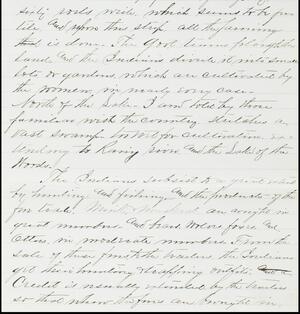 sixty rods wide, which seems to be fer-
tile and upon this strip all the farming
that is done. The Govt teams plough the
land and the Indians divide it into small
lots or gardens, which are cultivated by
the women, in nearly every case.
North of the Lake I am told by those
familiar with the country stretches a
vast swamp unfit for cultivation, ex-
tending to Rainy river and the Lake of the
Woods.
The Indians subsist to a great extent
by hunting and fishing and the products of the
fur trade. are caught in
great numbers and
Otter, in moderate numbers. From the
sale of these furs to the traders the Indians
get their hunting & trapping outfits. and
Credit is usually extended by the traders
so that when the furs are brought in